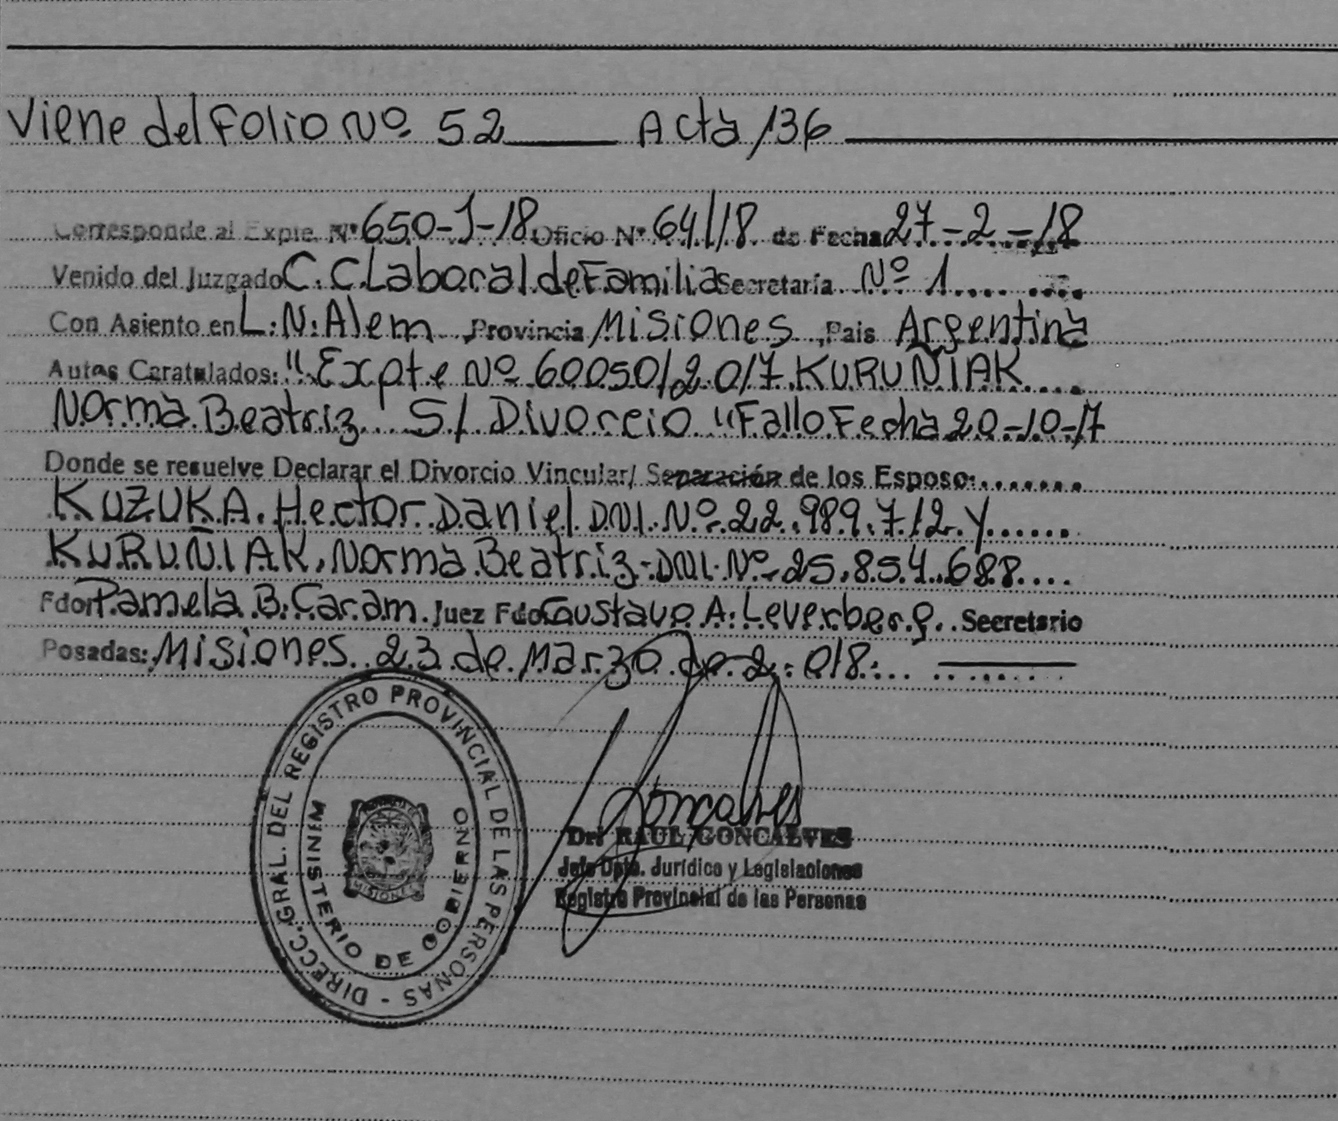 Viene del Folio Nº 52 Acta 136
Corresponde al Expte. Nº 650-J-18 Oficio Nº 64/18 de Fecha 27-2-18
Venido del Juzgado C. C Laboral de Familia Secretaría Nº 1
Con Asiento en L.N. Alem Provincia Misiones, País Argentina
Autos Caratulados: "Expte Nº 60050/2017 KURUÑIAK
Norma Beatriz S/ Divorcio "Fallo Fecha 20-10-17
Donde se resuelve Declarar el Divorcio Vincular/ Separación de los Esposo:
KUZUKA, Hector Daniel D.N.I. Nº 22.989.712 Y
KURUÑIAK, Norma Beatriz-DNI-Nº-25.854.688
Fdor Pamela B. Caram. Juez Fdo Gustavo A. Leverberg. Secretario
Posadas: Misiones 23 de Marzo de 2.018.
DIRECC. GRAL. DEL REGISTRO PROVINCIAL DE LAS PERSONAS -
MINISTERIO DE GOBIERNO
MISIONES
Goncalves
Dr. RAUL GONCALVES
Jefe Dpto. Jurídico y Legislaciones
Registro Provincial de las Personas